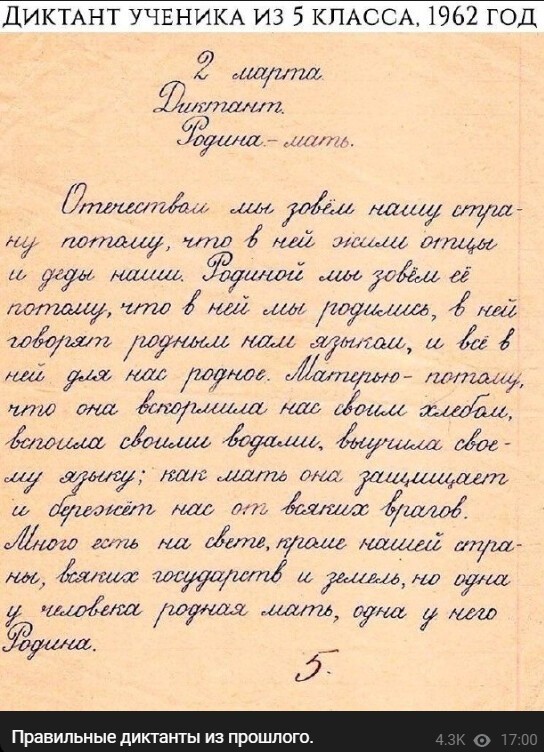 ДИКТАНТ УЧЕНИКА ИЗ 5 КЛАССА, 1962 ГОД
2 марта
Диктант.
Родина - мать.
Отечеством мы зовём нашу стра-
ну потому, что в ней жили отцы
и деды наши. Родиной мы зовём её
потому, что в ней мы родились, в ней
говорят родным нам языком, и всё в
ней для нас родное. Матерью- потому,
что она вскормила нас своим хлебом,
вспоила своими водами, выучила свое-
му языку; как мать она защищает
и бережёт нас от всяких врагов.
Много есть на свете, кроме нашей стра-
ны, всяких государств и земель, но одна
у человека родная мать, одна у него
Родина.
5.
Правильные диктанты из прошлого.
4.3K 17:00